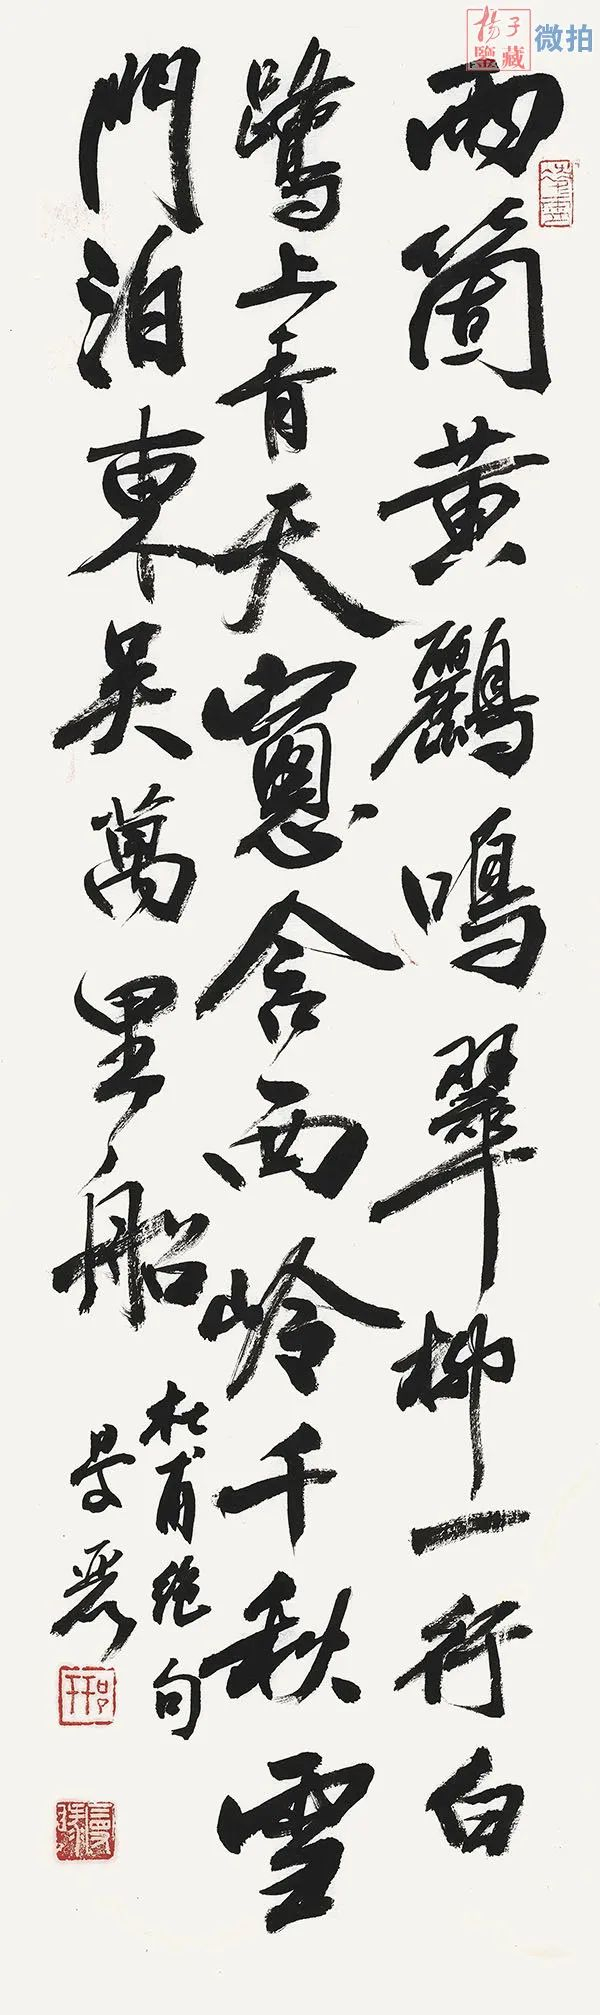 楊子
鑒藏
微拍
兩箇黄鸝鳴翠柳一行白
鷺上青天窻含西岭千秋雪
門泊東吳萬里船
杜甫絕句